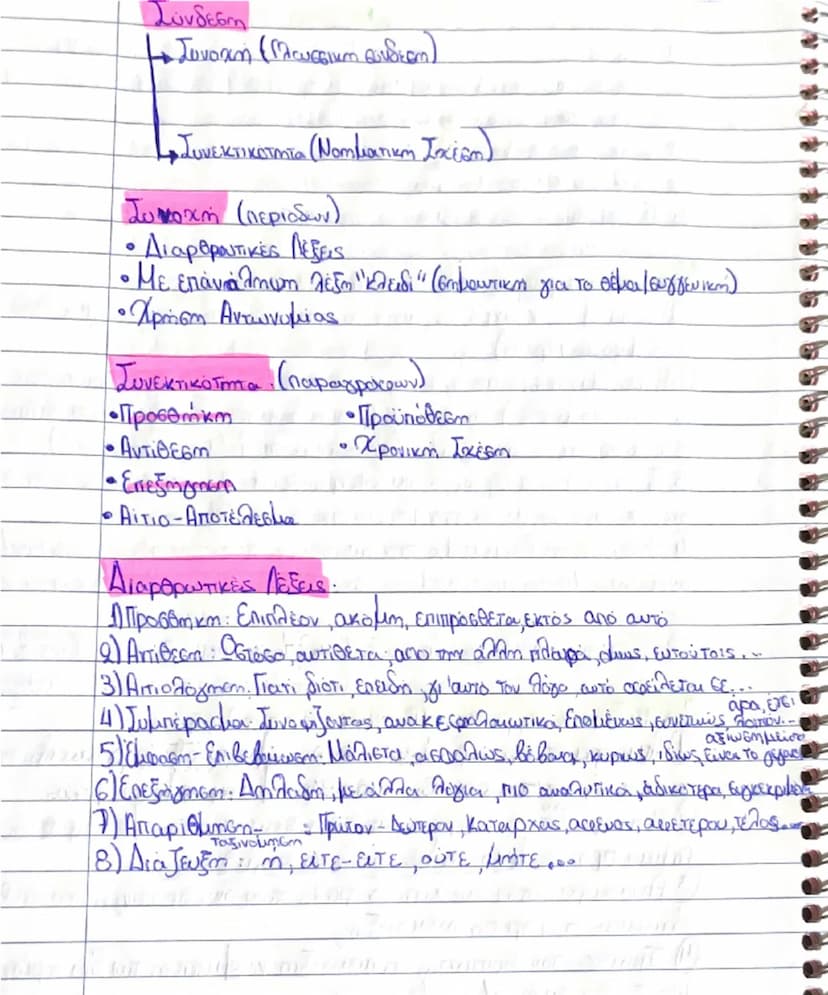 Σύνδεση
Συνοχή (Γλωσσική σύνδεση)
Συνεκτικότητα (Νοηματική Σχέση)
Συνοχή (περιόδων)
• Διαρθρωτικές Λέξεις
• Με επανάληψη λέξη "κλειδί" (σημαντική για το θέμα/συγγενική)
• Χρήση Αντωνυμίας
Συνεκτικότητα: (παραγράφων)
• Προσθήκη • Προϋπόθεση
• Αντίθεση • Χρονική Σχέση
• Επεξήγηση
• Αίτιο-Αποτέλεσμα
Διαρθρωτικές Λέξεις:
1) Προσθήκη: Επιπλέον, ακόμη, επιπρόσθετα, εκτός από αυτό
2) Αντίθεση: Ωστόσο, αντίθετα, από την άλλη πλευρά, όμως, εντούτοις...
3) Αιτιολόγηση: Γιατί, διότι, επειδή, γι'αυτό τον λόγο, αυτό οφείλεται σε...
άρα, έτσι
4) Συμπέρασμα: Συνοψίζοντας, ανακεφαλαιωτικά, Επομένως, συνεπώς, λοιπόν...
αξιοσημείωτο
5) Έμφαση-Επιβεβαίωση: Μάλιστα, ασφαλώς, βέβαια, κυρίως, ιδίως, είναι το
6) Επεξήγηση: Δηλαδή, με άλλα λόγια, πιο αναλυτικά, ειδικότερα, συγκεκριμένα
7) Απαρίθμηση- : Πρώτον-Δεύτερον, καταρχάς, αφενός, αφετέρου, τέλος...
ταξινόμηση
8) Διάζευξη: ή, είτε-είτε, ούτε, μήτε...